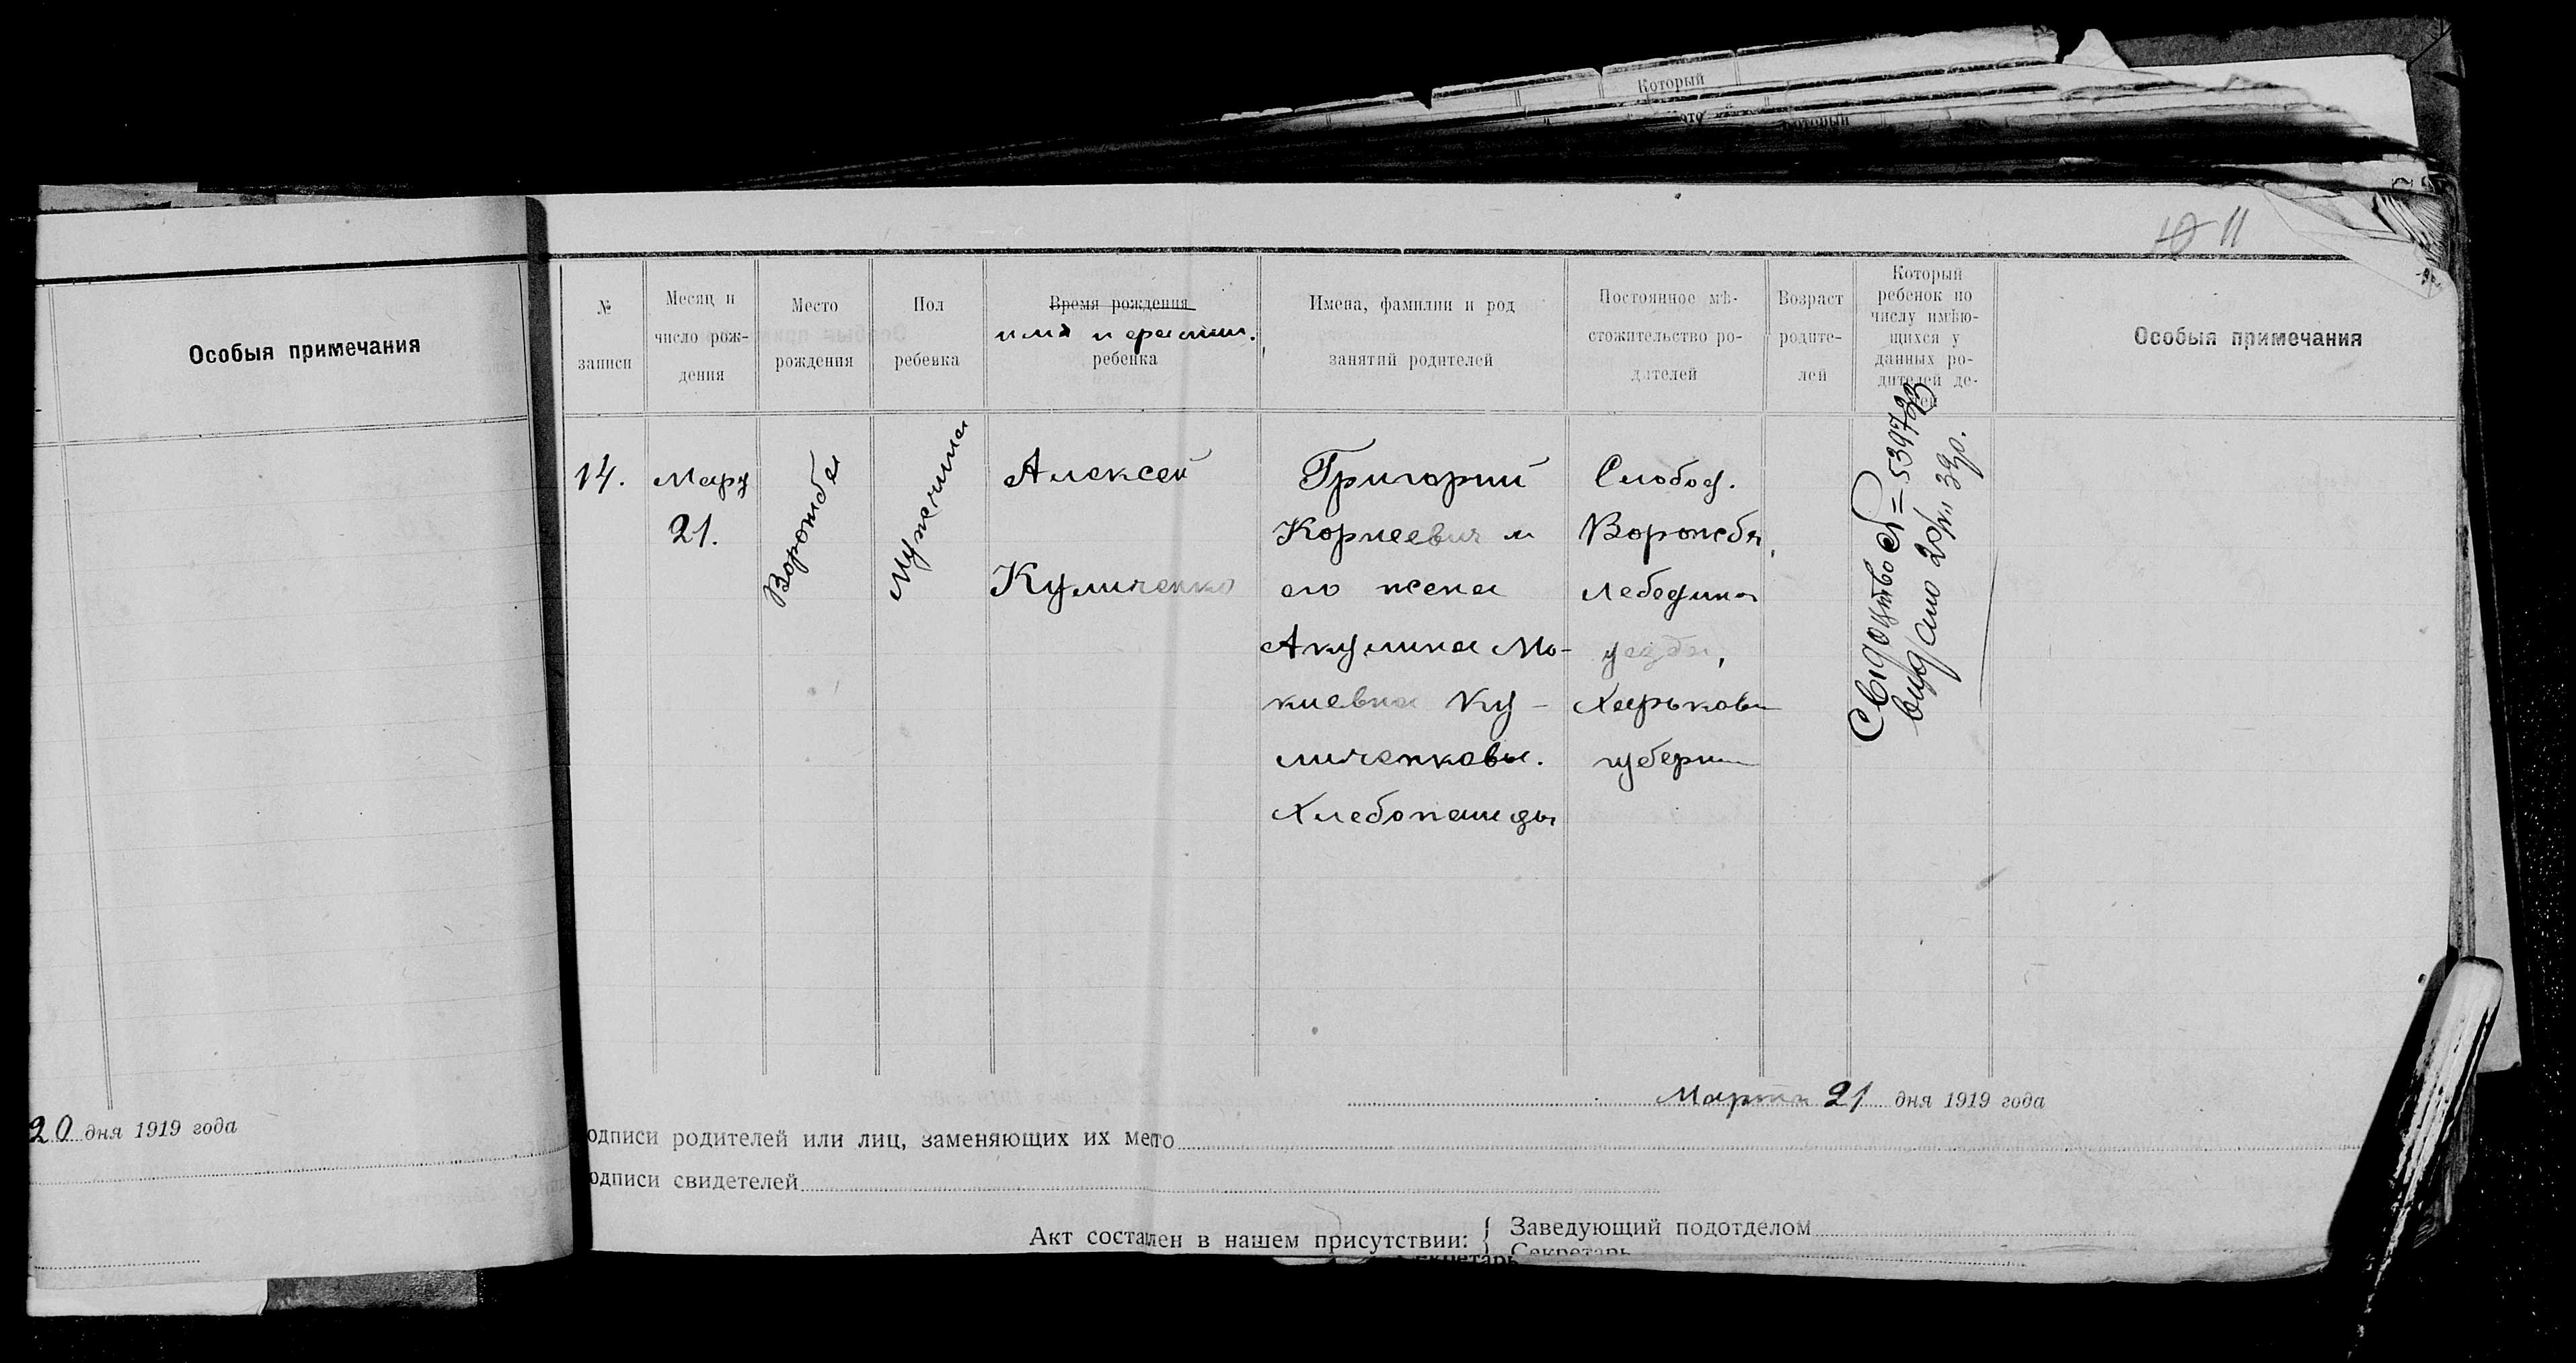 Который
Который
11
Особыя примечания
20 дня 1919 года
№
записи
Месяц и
число рож-
дения
Место
рождения
Пол
ребенка
Время рождения
имя и фамил.
ребенка
Имена, фамилии и род
занятий родителей
Постоянное мѣ-
стожительство ро-
дителей
Возраст
родите-
лей
Который
ребенок по
числу имѣю-
щихся у
данных ро-
дителей де-
Особыя примечания
14.
Март
21.
Ворожба
Мужчина
Алексей
Куличенко
Григорий
Корнеевич и
его жена
Акулина Мо-
киевна Ку-
личенковы.
Хлебопашцы
Слобод.
Ворожба,
Лебедин
уезда,
Харьков
губерни
Марта 21 дня 1919 года
одписи родителей или лиц, заменяющих их место
одписи свидетелей
Акт составлен в нашем присутствии:
Заведующий подотделом
Секретарь